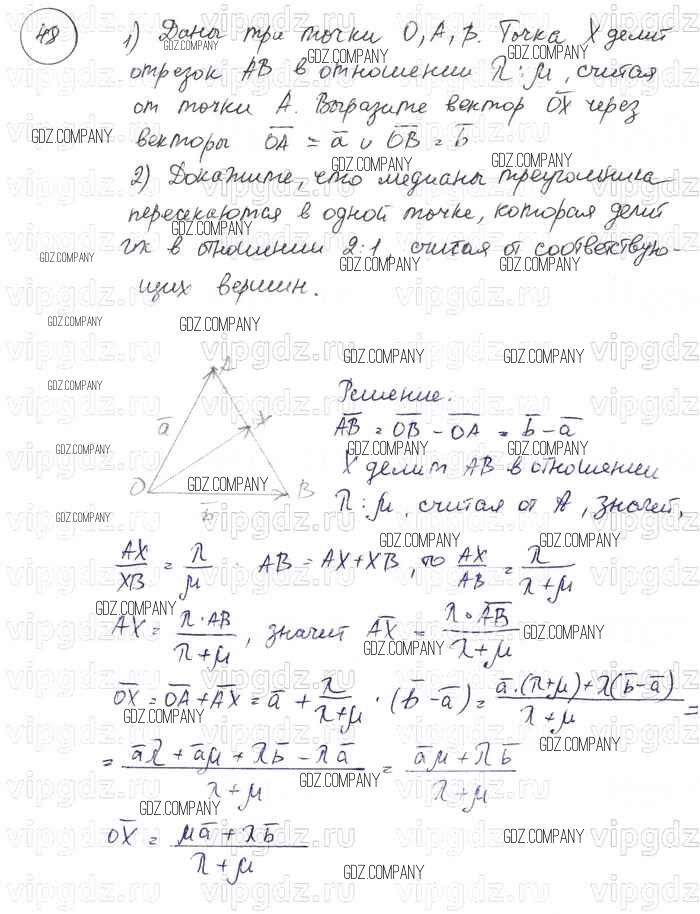 48
1) Даны три точки O, A, B. Точка X делит
отрезок AB в отношении λ:μ, считая
от точки A. Выразите вектор O̅X̅ через
векторы O̅A̅ = a̅ и O̅B̅ = b̅
2) Докажите, что медианы треугольника
пересекаются в одной точке, которая делит
их в отношении 2:1, считая от соответствую-
щих вершин.
A
a̅
X
O
B
b̅
Решение.
A̅B̅ = O̅B̅ - O̅A̅ = b̅ - a̅
X делит AB в отношении
λ:μ, считая от A, значит,
AX/XB = λ/μ · AB = AX + XB, то AX/AB = λ/(λ+μ)
AX = λ·AB/(λ+μ), значит A̅X̅ = λ·A̅B̅/(λ+μ)
O̅X̅ = O̅A̅ + A̅X̅ = a̅ + λ/(λ+μ) · (b̅ - a̅) = (a̅·(λ+μ) + λ(b̅ - a̅))/(λ+μ) =
= (a̅λ + a̅μ + λb̅ - λa̅)/(λ+μ) = (a̅μ + λb̅)/(λ+μ)
O̅X̅ = (μa̅ + λb̅)/(λ+μ)
GDZ.COMPANY
vipgdz.ru